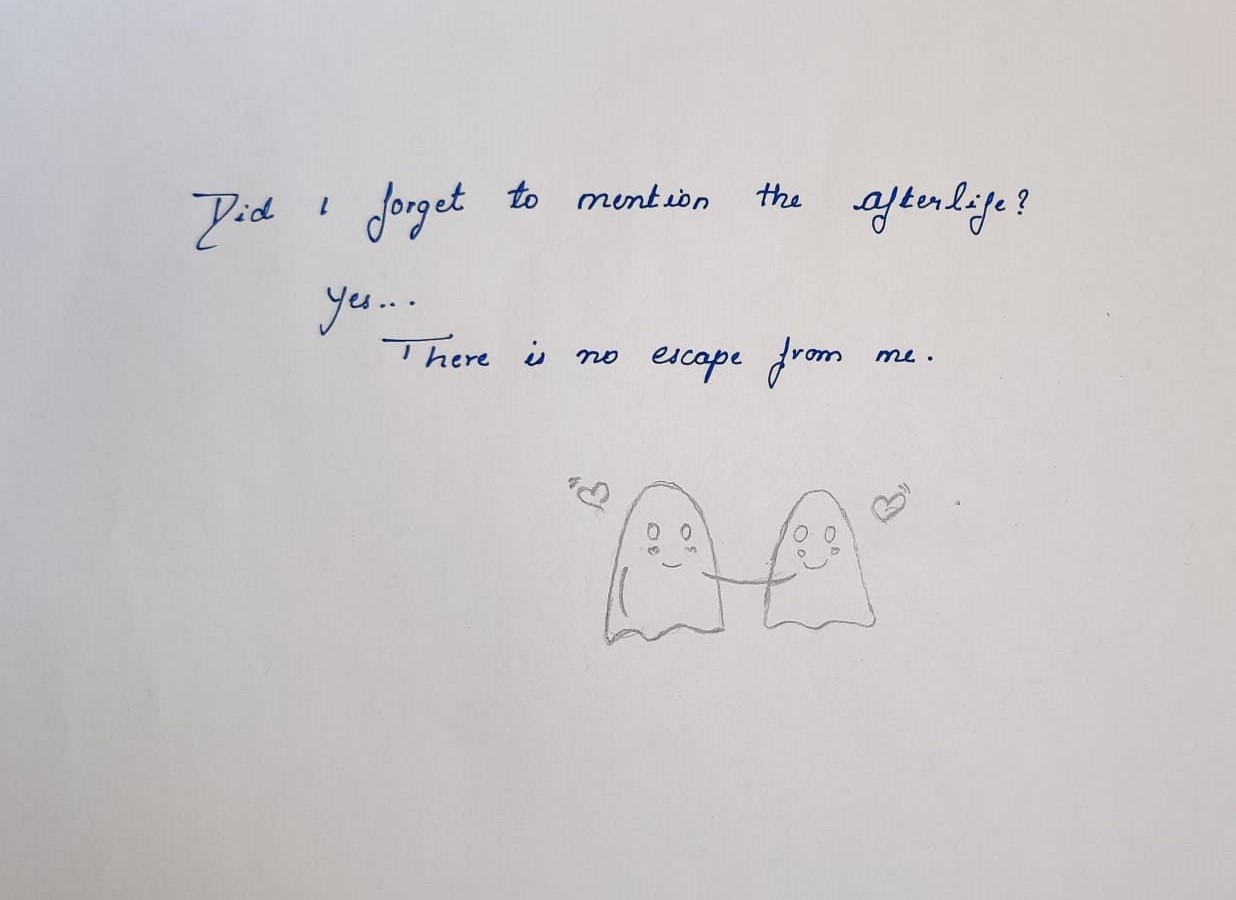 Did I forget to mention the afterlife?
Yes...
There is no escape from me.